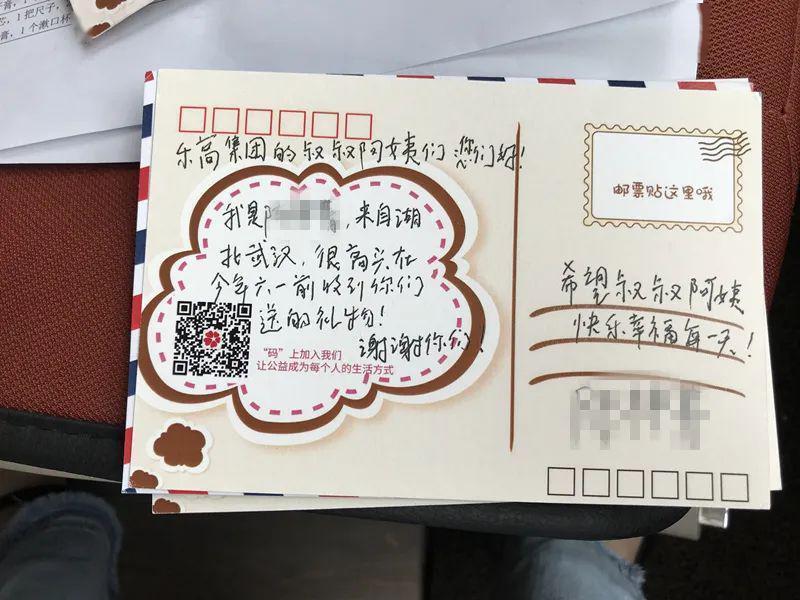 膏，1
芯，1把尺子，
膏，1个漱口杯
乐高集团的叔叔阿姨们 您们好！
我是，来自湖
北武汉，很高兴在
今年六一前收到你们
送的礼物！
谢谢你们！
“码”上加入我们
让公益成为每个人的生活方式
邮票贴这里哦
希望叔叔阿姨
快乐幸福每一天！